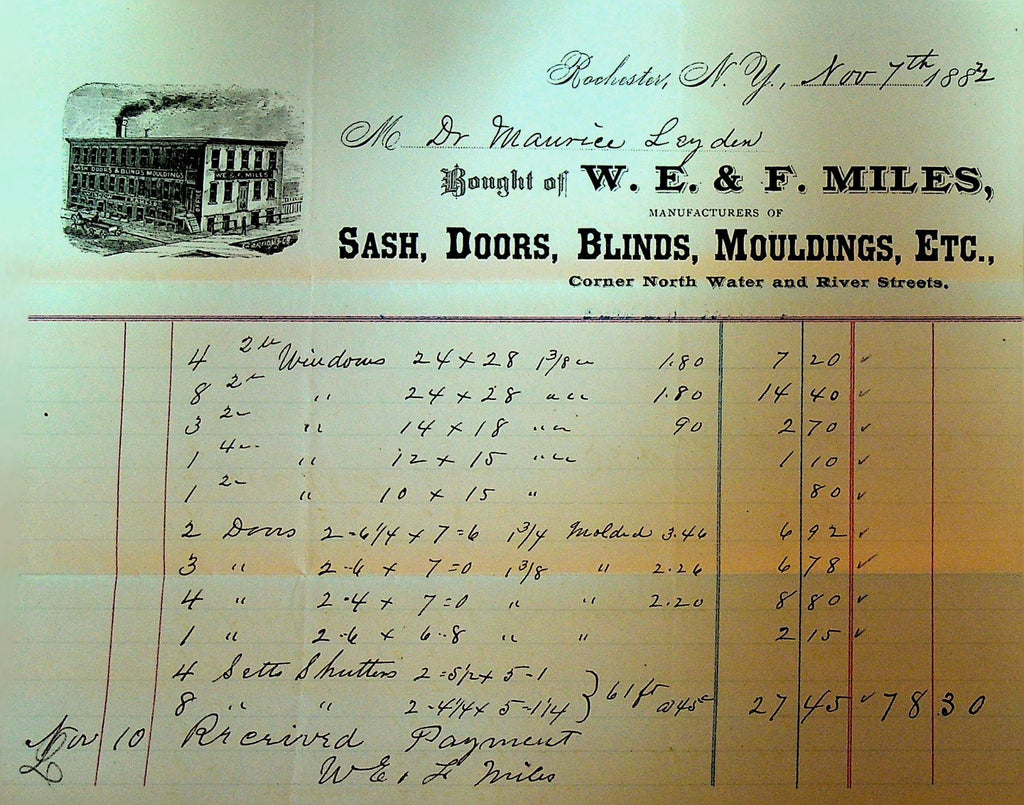 Rochester, N. Y., Nov 7th 1882
M Dr Maurice Leyden
Bought of W. E. & F. MILES,
MANUFACTURERS OF
SASH, DOORS, BLINDS, MOULDINGS, ETC.,
Corner North Water and River Streets.
SASH DOORS & BLINDS MOULDINGS
W.E. & F. MILES
4 2 Lt Windows 24 x 28 1 3/8 " 1.80 7 20 ✓
8 2 " " 24 x 28 " " 1.80 14 40 ✓
3 2 " " 14 x 18 " " 90 2 70 ✓
1 4 " " 12 x 15 " " 1 10 ✓
1 2 " " 10 x 15 " 80 ✓
2 Doors 2=6 1/4 x 7=6 1 3/4 Molded 3.46 6 92 ✓
3 " 2-6 x 7=0 1 3/8 " 2.26 6 78 ✓
4 " 2-4 x 7=0 " " 2.20 8 80 ✓
1 " 2-6 x 6-8 " " 2 15 ✓
4 Setts Shutters 2=5 1/2 x 5-1
8 " " 2-4 1/4 x 5-1 1/4 } 61 ft @ 45c 27 45 ✓ 78.30
Nov 10 Received Payment
W E & F Miles